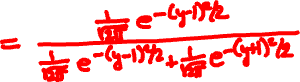 = \frac{\frac{1}{\sqrt{2\pi}} e^{-(y-1)^2/2}}{\frac{1}{\sqrt{2\pi}} e^{-(y-1)^2/2} + \frac{1}{\sqrt{2\pi}} e^{-(y+1)^2/2}}